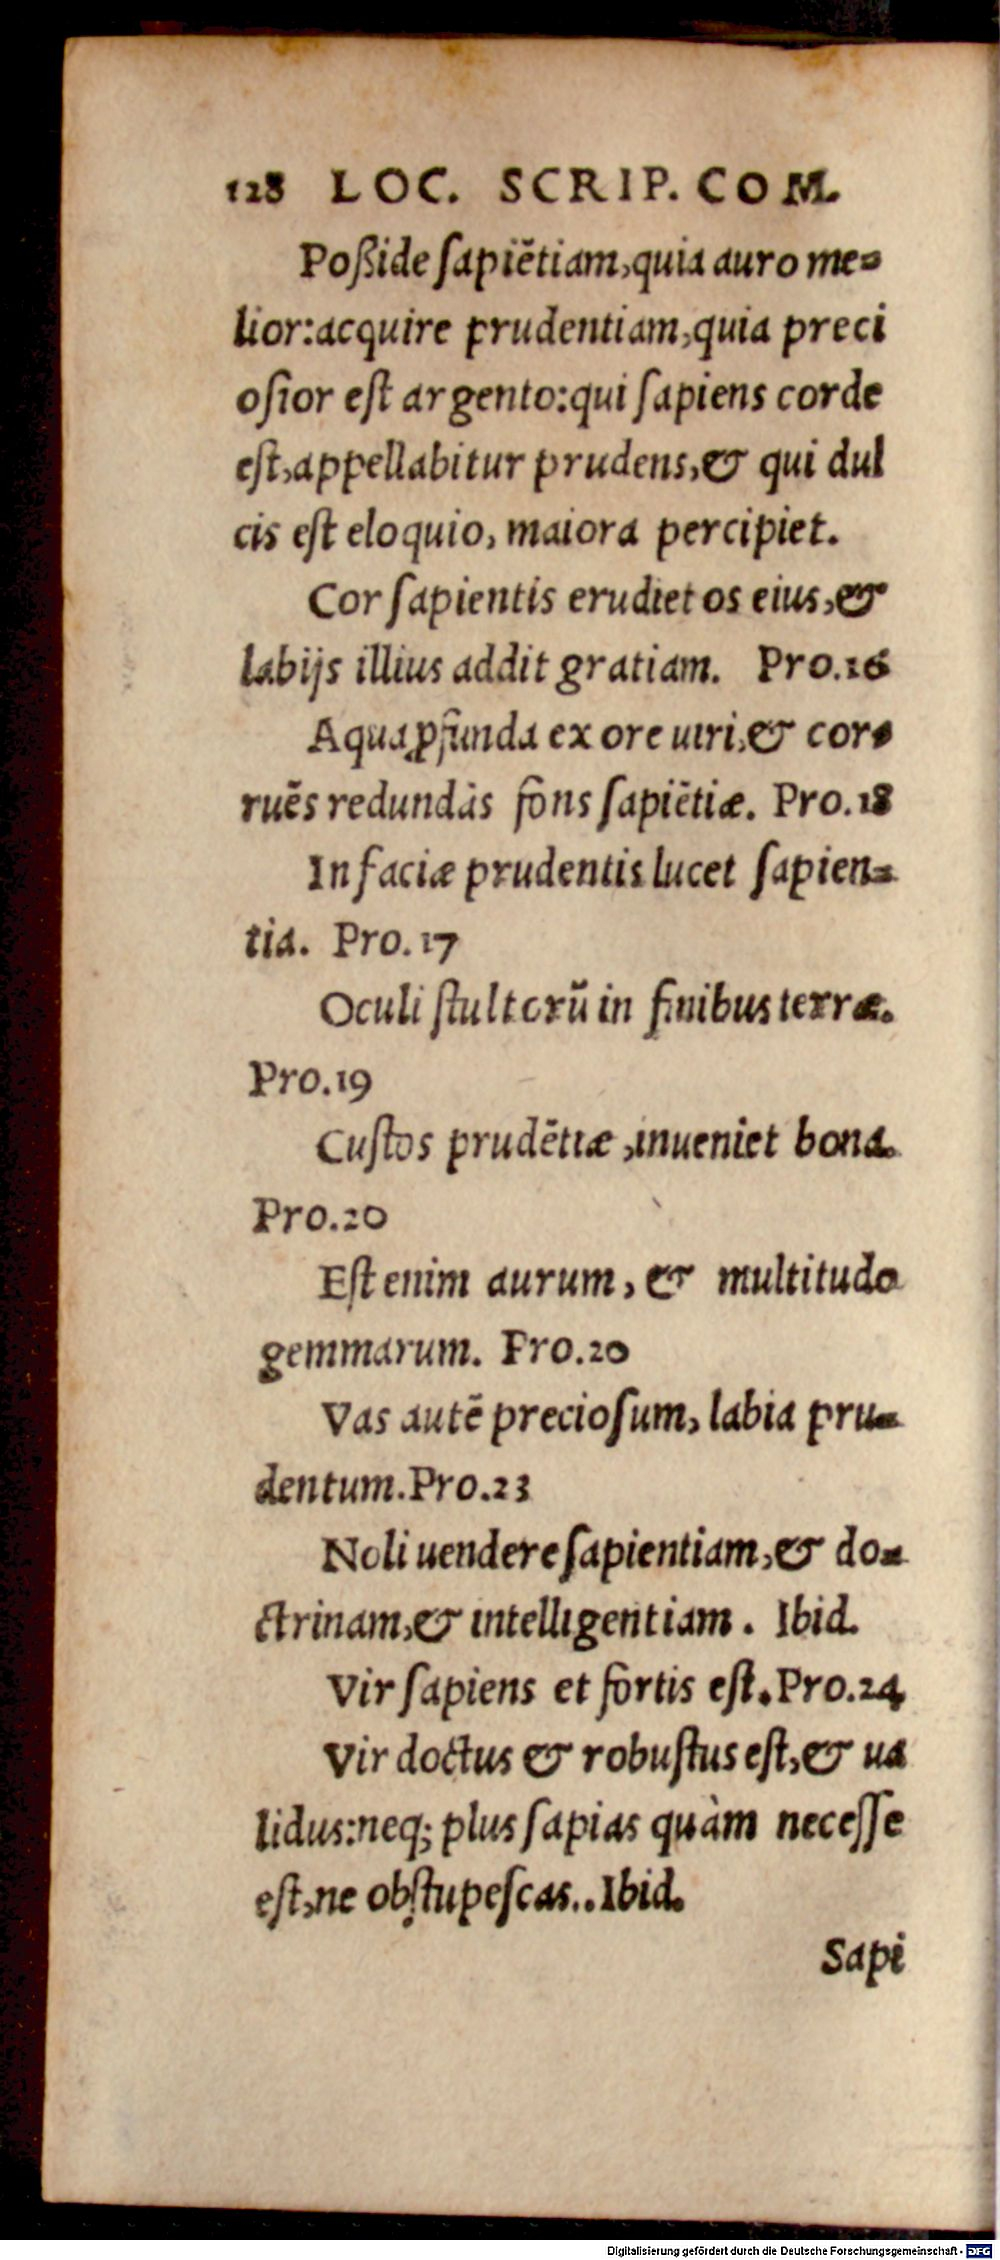 128 LOC. SCRIP. COM.
Poßide ſapiẽtiam, quia auro me=
lior: acquire prudentiam, quia preci
oſior eſt argento: qui ſapiens corde
eſt, appellabitur prudens, & qui dul
cis eſt eloquio, maiora percipiet.
Cor ſapientis erudiet os eius, &
labijs illius addit gratiam. Pro.16
Aqua ꝓfunda ex ore uiri, & cor=
ruẽs redundãs fons ſapiẽtiæ. Pro.18
In faciæ prudentis lucet ſapien=
tia. Pro.17
Oculi ſtultorũ in finibus terræ.
Pro.19
Cuſtos prudẽtiæ, inueniet bona.
Pro.20
Eſt enim aurum, & multitudo
gemmarum. Pro.20
Vas autẽ precioſum, labia pru=
dentum. Pro.23
Noli uendere ſapientiam, & do=
ctrinam, & intelligentiam. Ibid.
Vir ſapiens et fortis eſt. Pro.24
Vir doctus & robuſtus eſt, & ua
lidus: neq; plus ſapias quàm neceſſe
eſt, ne obſtupeſcas.. Ibid.
Sapi
Digitalisierung gefördert durch die Deutsche Forschungsgemeinschaft - DFG